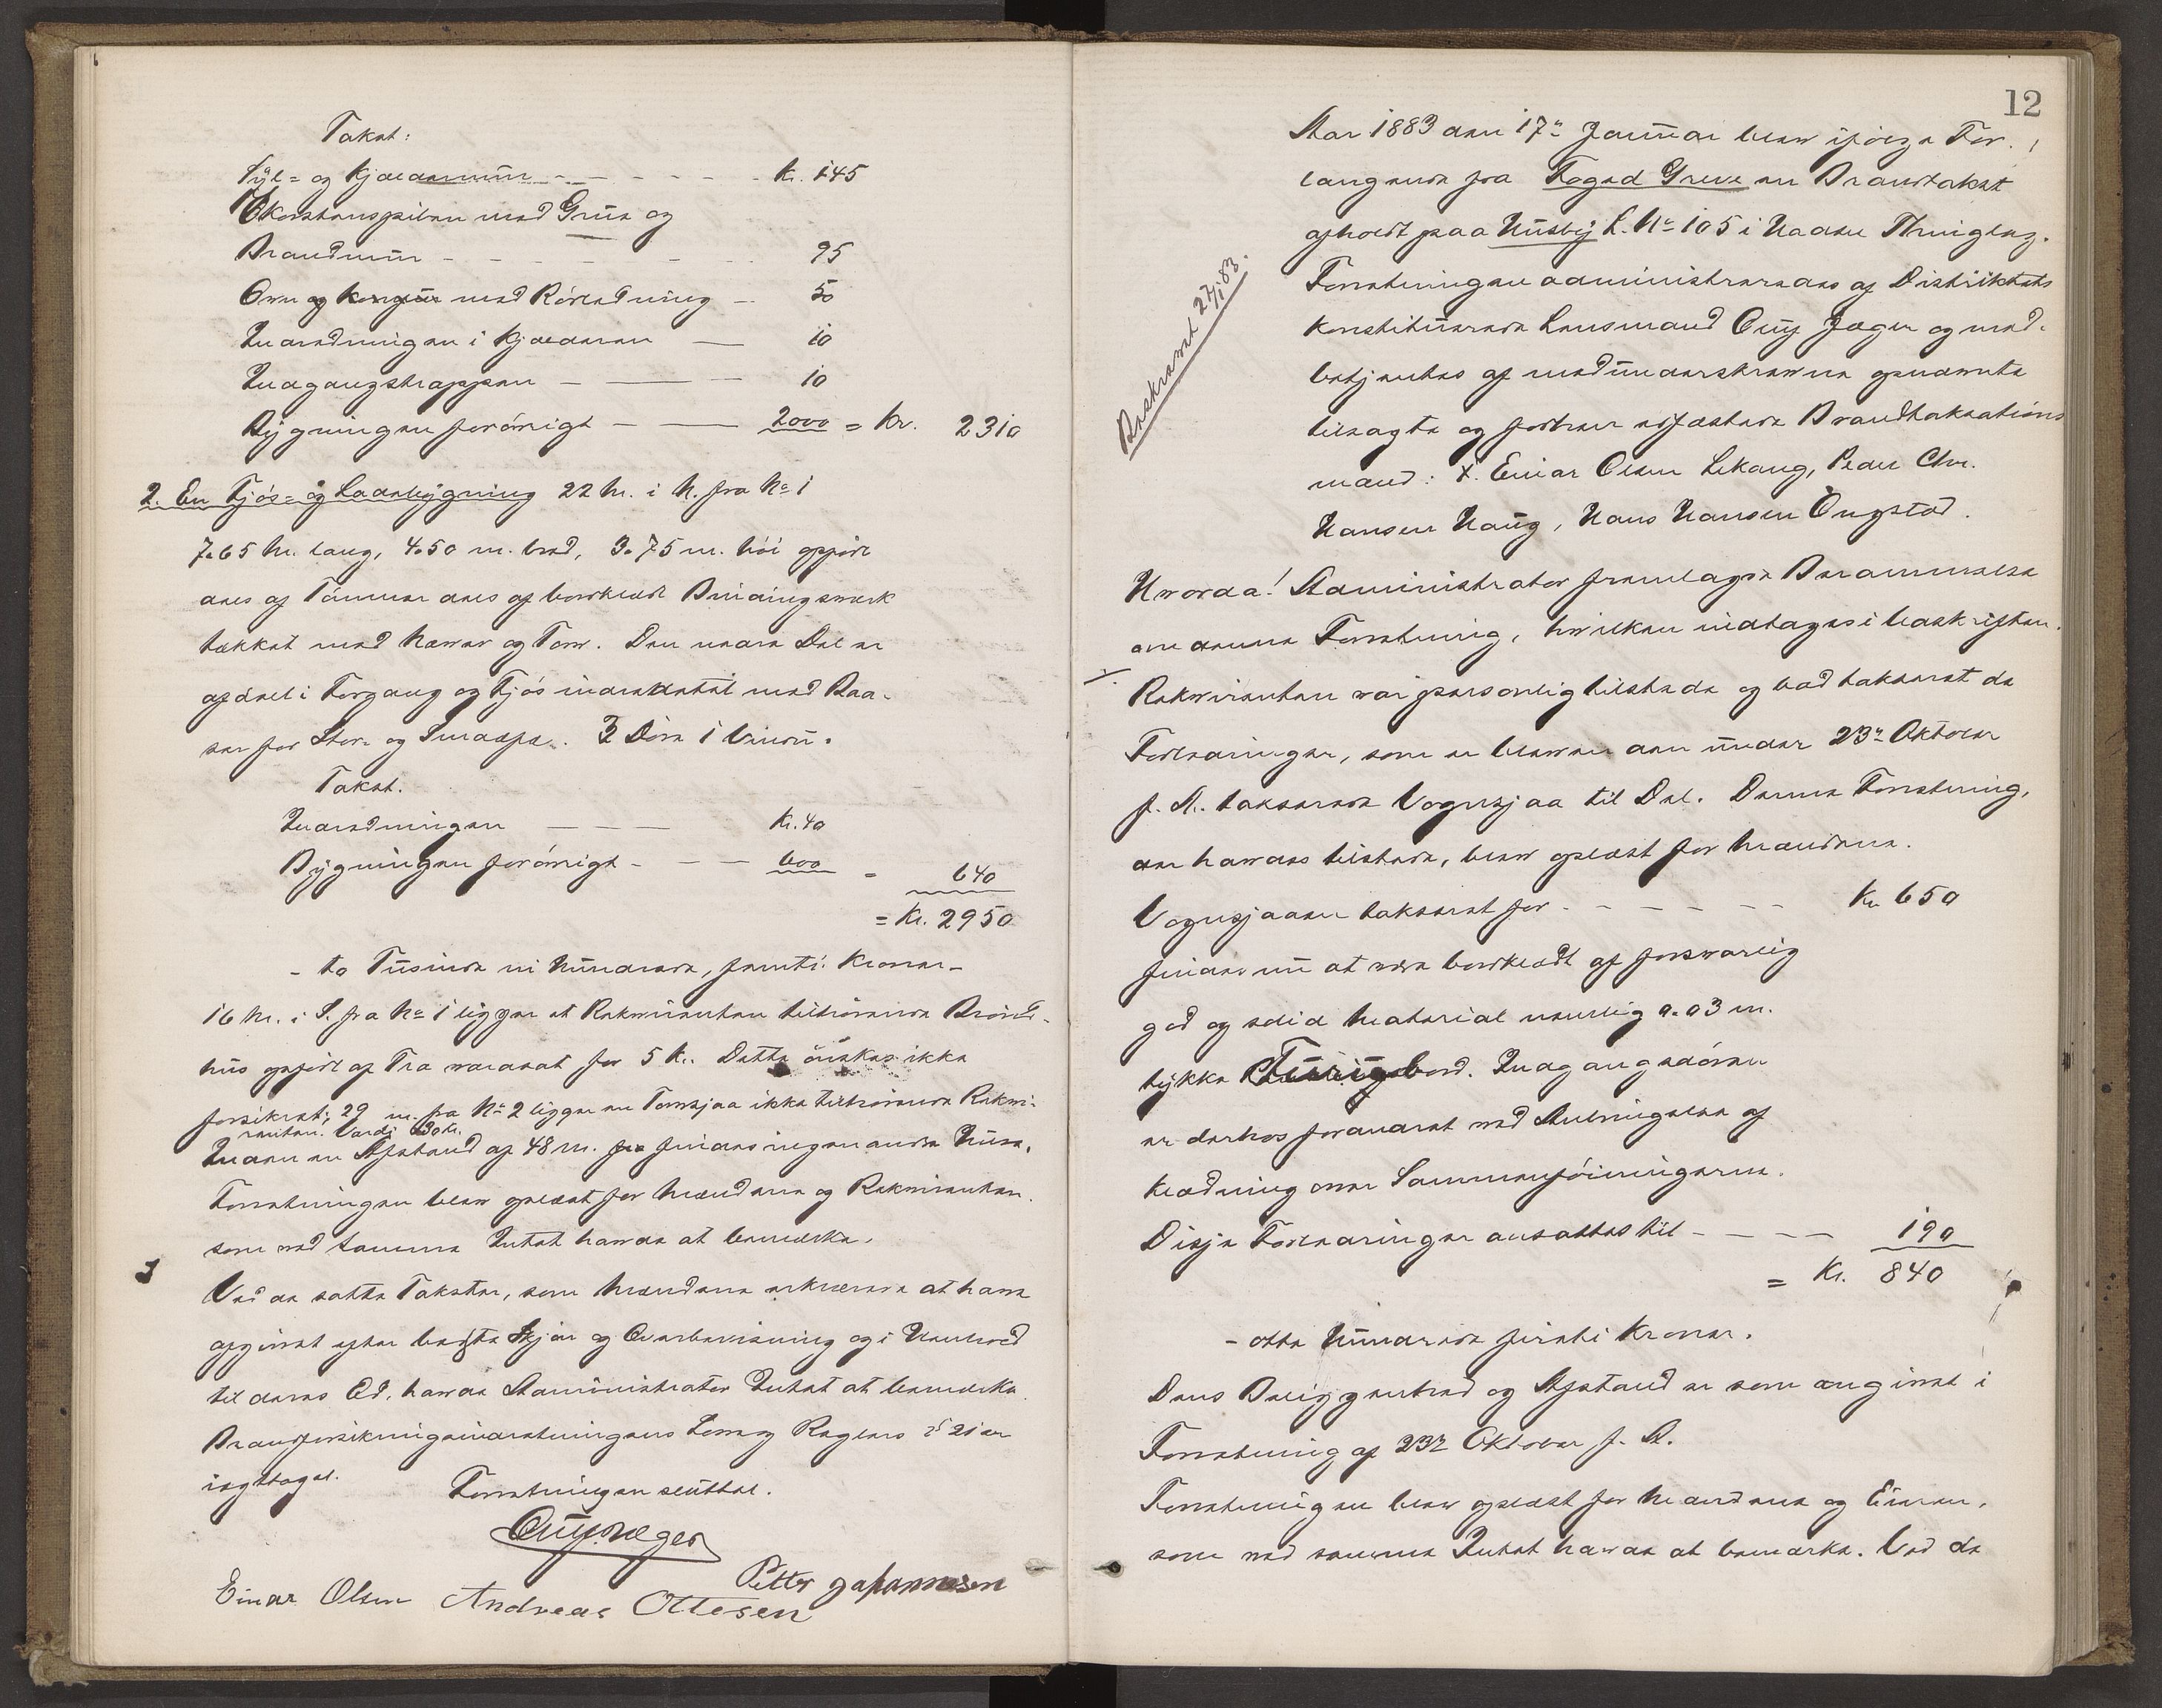 Takst:
Syl- og Kjælderrum - - - - - Kr. 145
Skorstenspiben med Grue og
Brandmur - - - - - 95
Ovn og Komfur med Rørledning - 50
Indredningen i Kjælderen — 10
Indgangstrappen — — — 10
Bygningen forøvrigt — — 2000 = Kr. 2310
2. En Fjøs- og Ladebygning 22 M. i N. fra No 1
7.65 M. lang, 4.50 m. bred, 3.75 m. høi opført
dels af Tømmer dels af bordklædt Bindingsværk
tækket med Næver og Torv. Den nedre Del er
afdelt i Forgang og Fjøs indredetet med Baa-
ser for Stor- og Smaafæ. 3 Døre 1 Vindu.
Takst.
Indredningen — — — Kr. 40
Bygningen forøvrigt - — — 600 = 640
= Kr. 2950
- to Tusinde ni Hundrede, femti Kroner -
16 M. i S. fra No 1 ligger et Rekvirenten tilhørende Brønd-
hus opført af Træ værdsat for 5 Kr. Dette ønskes ikke
forsikret; 29 m. fra No 2 ligger en Torvsjaa ikke tilhørende Rekvi-
renten. Værdi 30 Kr.
Inden en Afstand af 48 m. findes ingen andre Huse.
Forretningen blev oplæst for Mændene og Rekvirenten
som ved samme Intet havde at bemærke.
Ved de satte Takster, som Mændene erklærede at have
afgivet efter bedste Skjøn og Overbevisning og i Henhold
til deres Ed, havde Administrator Intet at bemærke.
Brandforsikringsindretningens Lov og Reglers § 21 er
iagttaget.
Forretningen sluttet.
Aug. Jæger
Petter Johannesen
Einar Olsen Andreas Ottesen
12
Aar 1883 den 17de Januar blev ifølge For-
langende fra Foged Greve en Brandtakst
afholdt paa Husby L. No 105 i Thinglag.
Forretningen administreredes af Distriktets
konstituerede Lensmand Aug. Jæger og med-
betjentes af medunderskrevne opnævnte
tilsagte og forhen edfæstede Brandtaksations
mænd: Einar Olsen Lekang, Peder Chr.
Hansen Haug, Hans Hansen Øngstad.
Beskrevet 27/1 83.
Hvorda! Administrator fremlagde Berammelse
om denne Forretning, hvilken indtages i beskriften.
Rekvirenten var personlig tilstede og bad takseret de
Forbedringer, som er bleven den under 23de Oktober
f. A. takserede Vognsjaa til Del. Denne Forretning,
der havdes tilstede, blev oplæst for Mændene.
Vognsjaaen takseret for - - - - - Kr. 650
findes nu at være bordklædt af forsvarlig
god og solid Material nemlig 0.03 m.
tykke bord. Indgangsdøren
er derhos forandret ved Anbringelse af
Klædning over Sammenføiningerne.
Disse Forbedringer ansættes til - — — — 190
= Kr. 840
- otte Hundrede firti Kroner.
Dens Beliggenhed og Afstand er som angivet i
Forretning af 23de Oktober f. A.
Forretningen blev oplæst for Mændene og Eieren,
som ved samme Intet havde at bemærke. Ved de